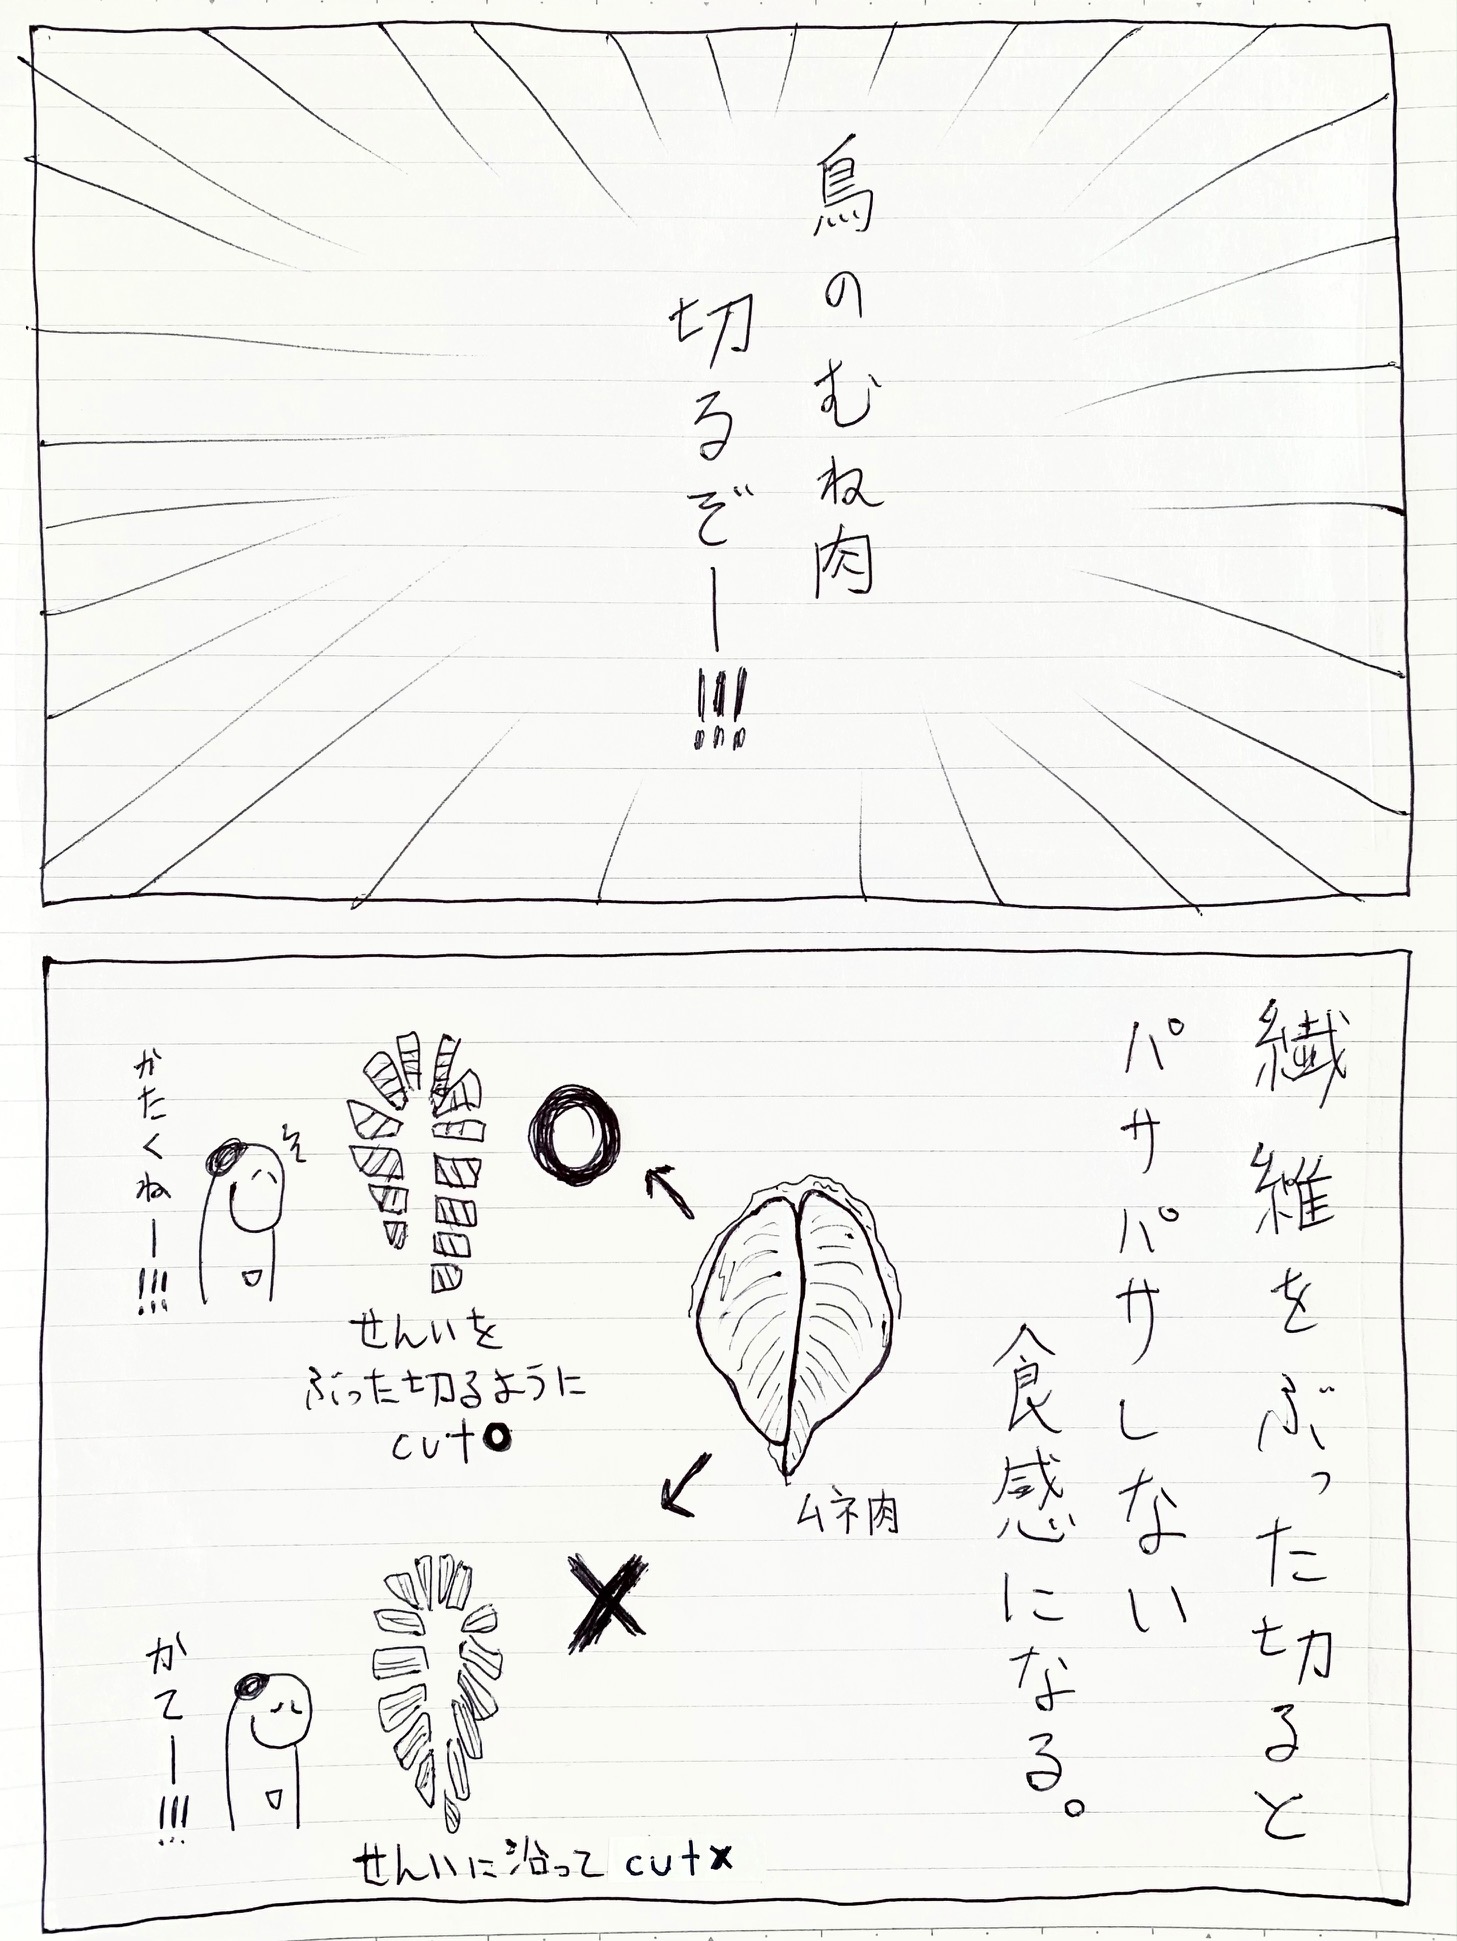 鳥のむね肉
切るぞー!!!
繊維をぶった切ると
パサパサしない
食感になる。
ムネ肉
せんいを
ぶった切るように
cut○
かたくねー!!!
せんいに沿って cut×
かてー!!!